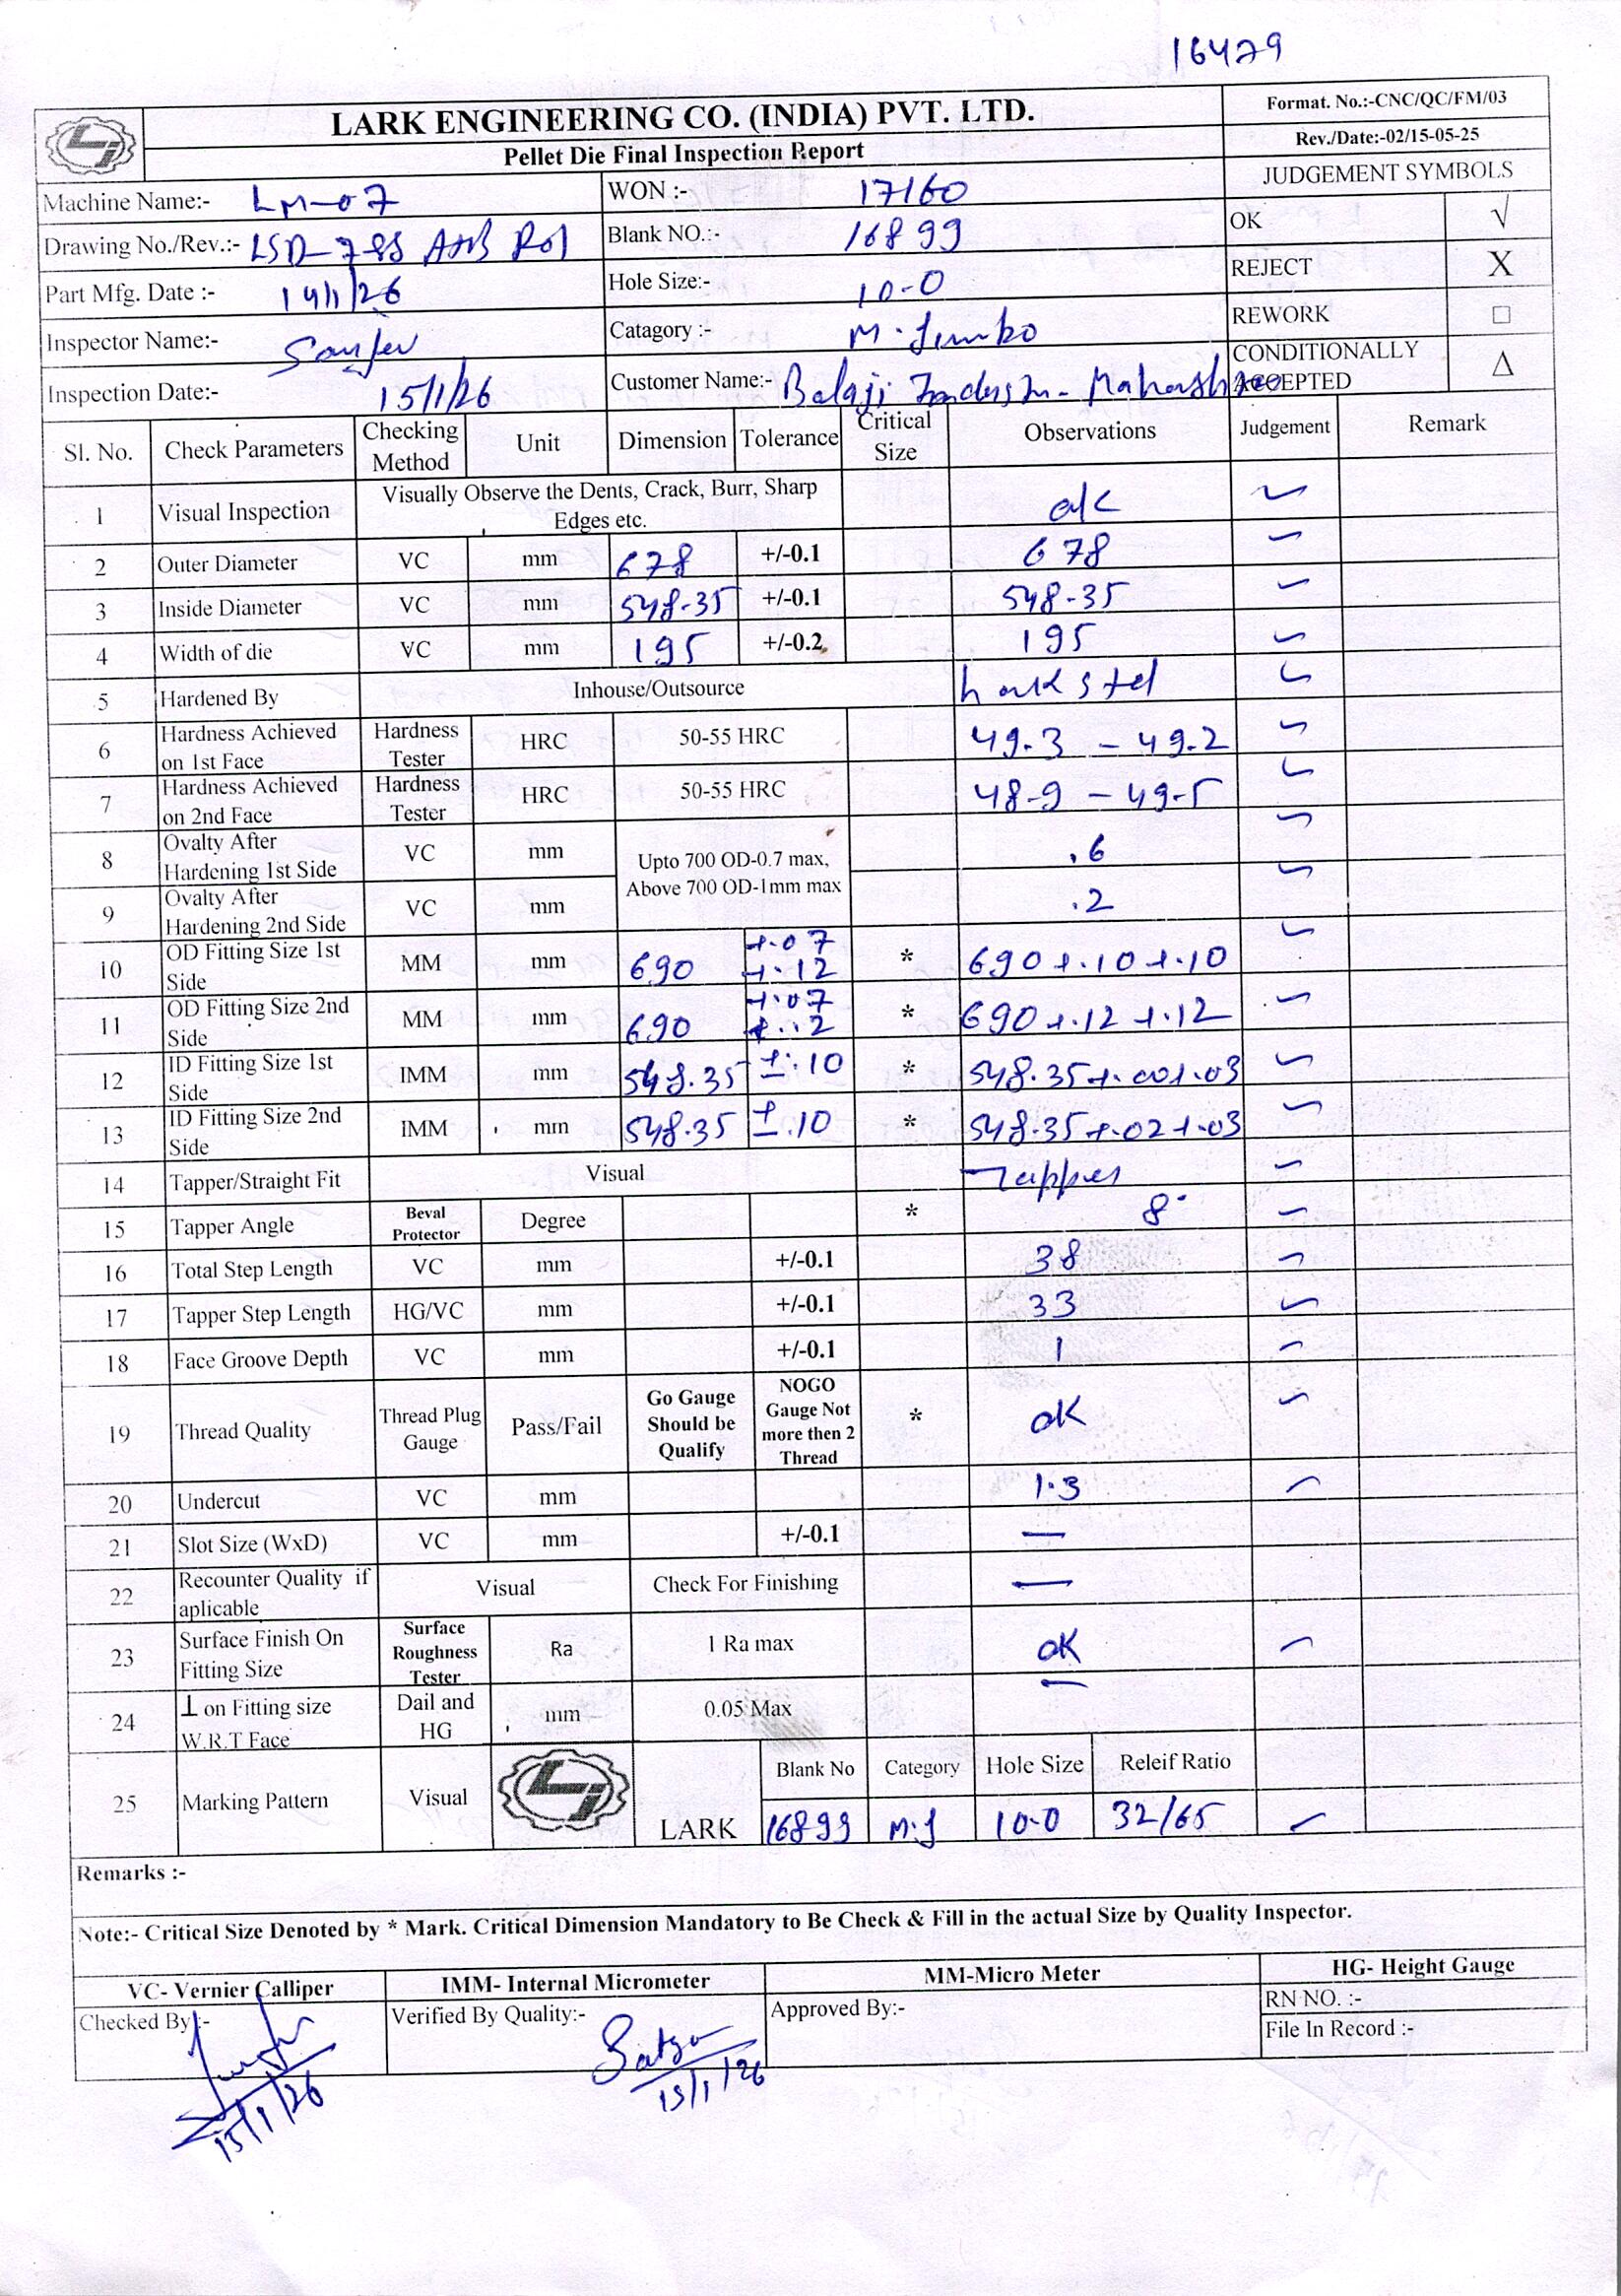 16479
LARK ENGINEERING CO. (INDIA) PVT. LTD.
Pellet Die Final Inspection Report
Format. No.:-CNC/QC/FM/03
Rev./Date:-02/15-05-25
Machine Name:- LM-07
WON :- 17160
JUDGEMENT SYMBOLS
Drawing No./Rev.:- LSD-788 R01
Blank NO.:- 16899
OK √
Part Mfg. Date :- 14/1/26
Hole Size:- 10-0
REJECT X
Inspector Name:-
Catagory :- M. Jumbo
REWORK □
Inspection Date:- 15/1/26
Customer Name:- Balaji
CONDITIONALLY ACCEPTED Δ
Sl. No. Check Parameters Checking Method Unit Dimension Tolerance Critical Size Observations Judgement Remark
1 Visual Inspection Visually Observe the Dents, Crack, Burr, Sharp Edges etc. ok
2 Outer Diameter VC mm 678 +/-0.1 678
3 Inside Diameter VC mm 548-35 +/-0.1 548-35
4 Width of die VC mm 195 +/-0.2 195
5 Hardened By Inhouse/Outsource
6 Hardness Achieved on 1st Face Hardness Tester HRC 50-55 HRC 49.3 - 49.2
7 Hardness Achieved on 2nd Face Hardness Tester HRC 50-55 HRC 48-9 - 49-5
8 Ovalty After Hardening 1st Side VC mm Upto 700 OD-0.7 max, Above 700 OD-1mm max .6
9 Ovalty After Hardening 2nd Side VC mm .2
10 OD Fitting Size 1st Side MM mm 690 +.07 +.12 * 690 +.10 +.10
11 OD Fitting Size 2nd Side MM mm 690 +.07 * 690 +.12 +.12
12 ID Fitting Size 1st Side IMM mm 548.35 ±.10 * 548.35 +.00 +.03
13 ID Fitting Size 2nd Side IMM mm 548.35 ±.10 * 548.35 +.02 +.03
14 Tapper/Straight Fit Visual Tapper
15 Tapper Angle Beval Protector Degree * 8°
16 Total Step Length VC mm +/-0.1 38
17 Tapper Step Length HG/VC mm +/-0.1 33
18 Face Groove Depth VC mm +/-0.1 1
19 Thread Quality Thread Plug Gauge Pass/Fail Go Gauge Should be Qualify NOGO Gauge Not more then 2 Thread * ok
20 Undercut VC mm 1.3
21 Slot Size (WxD) VC mm +/-0.1 —
22 Recounter Quality if aplicable Visual Check For Finishing —
23 Surface Finish On Fitting Size Surface Roughness Tester Ra 1 Ra max ok
24 ⊥ on Fitting size W.R.T Face Dail and HG mm 0.05 Max —
25 Marking Pattern Visual LARK Blank No Category Hole Size Releif Ratio
16899 M.J 10-0 32/65
Remarks :-
Note:- Critical Size Denoted by * Mark. Critical Dimension Mandatory to Be Check & Fill in the actual Size by Quality Inspector.
VC- Vernier Calliper IMM- Internal Micrometer MM-Micro Meter HG- Height Gauge
Checked By :- Verified By Quality:- Approved By:- RN NO. :-
File In Record :-
15/1/26 15/1/26